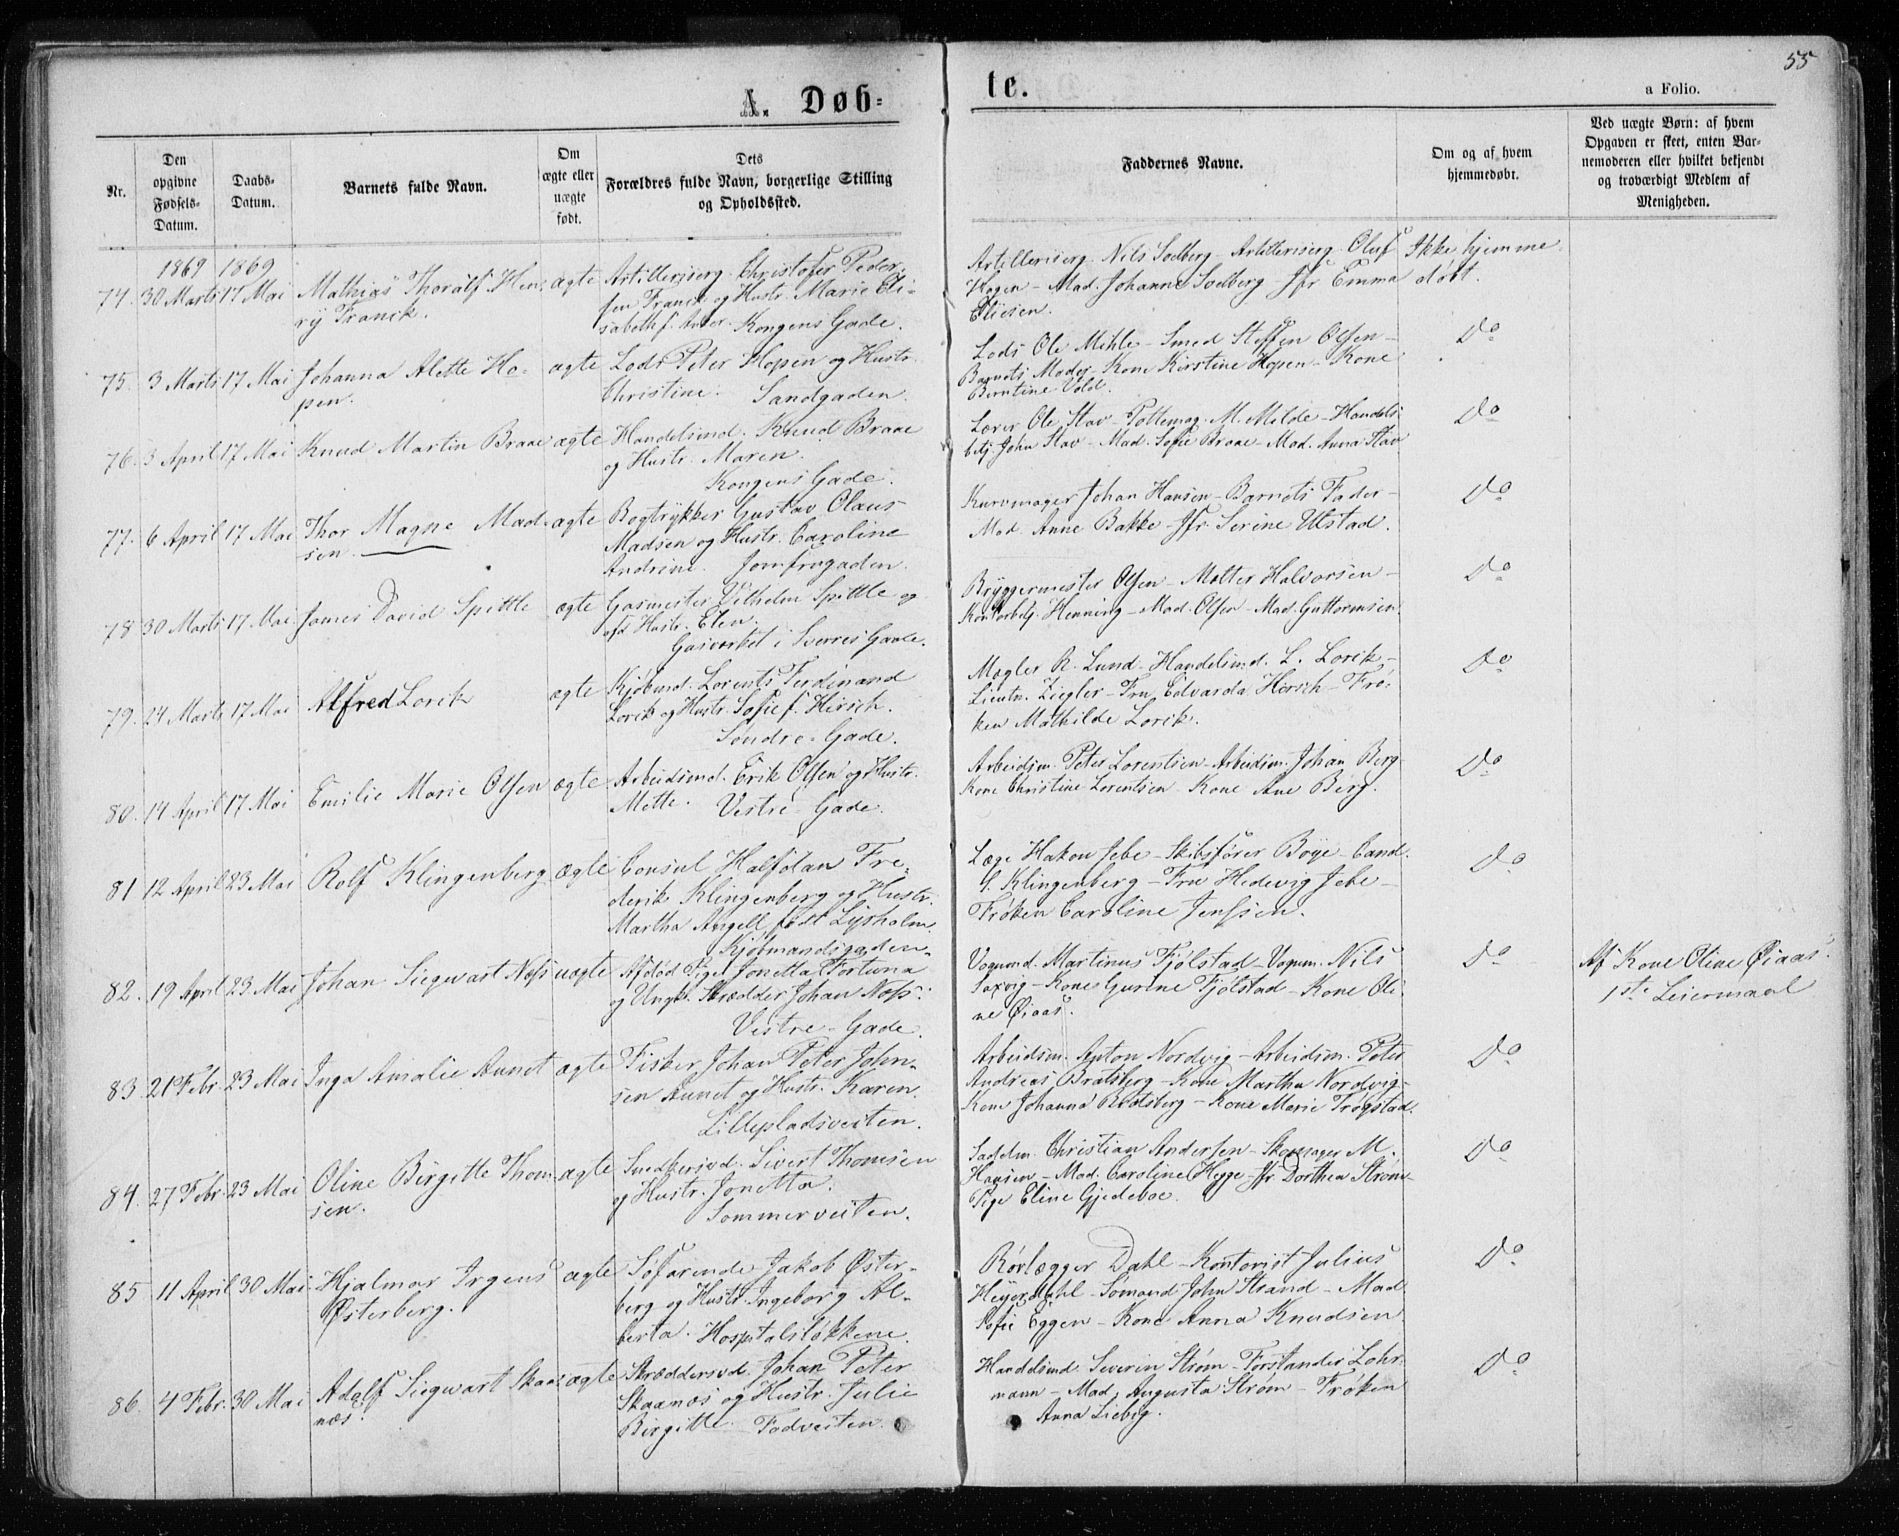 55
A. Døbte.
a Folio.
Nr.
Den opgivne Fødsels-Datum.
Daabs-Datum.
Barnets fulde Navn.
Om ægte eller uægte født.
Dets Forældres fulde Navn, borgerlige Stilling og Opholdssted.
Faddernes Navne.
Om og af hvem hjemmedøbt.
Ved uægte Børn: af hvem Opgaven er skeet, enten Barnemoderen eller hvilket bekjendt og troværdigt Medlem af Menigheden.
1869 1869
74. 30 Marts 17 Mai Mathias Thoralf Hen-
ry Franck.
ægte
Artilleriserg. Christofer Peder-
sen Franck og Hustr. Marie Eli-
sabeth f. Kongens Gade.
Artilleriserg. Nils Soelberg - Artilleriserg. Oluf
Hagen - Mad. Johanne Soelberg - Jfr Emma
Eliesen.
Ikke hjemme
døbt.
75. 3 Marts 17 Mai Johanna Alette Ho-
pen.
ægte
Lods Peter Hopen og Hustr.
Christine. Sandgaden.
Lods Ole Mehle - Smed Steffen Olsen -
Barnets Moder - Kone Kirstine Hopen - Kone
Berntine Vold.
Do
76. 3 April 17 Mai Knud Martin Braae
ægte
Handelsmd. Knud Braae
og Hustr. Maren.
Kongens Gade.
Lærer Ole Stav - Pottemag. M. Milde - Handels-
betj. John Stav - Mad. Sofie Braae - Mad. Anna Stav
Do
77. 6 April 17 Mai Thor Magne Mad-
sen.
ægte
Bogtrykker Gustav Olaus
Madsen og Hustr. Caroline
Andrine. Jomfrugaden.
Kurvmager Johan Hansen - Barnets Fader -
Mad. Anne Bakke - Jfr. Serine Utstad.
Do
78 30 Marts 17 Mai James David Spittle
ægte
Gasmester Vilhelm Spittle og
Hustr. Elen.
Gasverket i Sverres Gade.
Bryggermester Olsen - Møller Halvorsen -
Kontorbetj. Henning - Mad. Olsen - Mad. Guttormsen
Do
79. 24 Marts 17 Mai Alfred Lorck
ægte
Kjøbmd. Lorents Ferdinand
Lorck og Hustr. Sofie f. Hirsch.
Søndre-Gade.
Mægler R. Lund - Handelsmd. L. Lorck -
Lieutn. Ziegler - Fru Edvarda Hirsch - Frø-
ken Mathilde Lorck.
Do
80. 14 April 17 Mai Emilie Marie Olsen
ægte
Arbeidsmd. Erik Olsen og Hustr.
Mette. Vestre-Gade.
Arbeidsm. Peter Lorentsen - Arbeidsm. Johan Berg -
Kone Christine Lorentsen - Kone Ane Berg.
Do
81 12 April 23 Mai Rolf Klingenberg
ægte
Consul Halfdan Fre-
derik Klingenberg og Hustr.
Martha Angell født Lysholm.
Kjøbmandsgaden.
Læge Hakon Jebe - Skibsfører Boye - Cand.
S. Klingenberg - Fru Hedevig Jebe -
Frøken Caroline Jenssen.
Do
82. 19 April 23 Mai Johan Siegwart Næss
uægte
Afdød Pige Jonetta Fortuna
og Ungk. Skrædder Johan Næss.
Vestre-Gade.
Vognmd. Martinus Fjølstad - Vognm. Nils
Saxvig - Kone Gurine Fjølstad - Kone Oli-
ne Øiaas.
Do
Af Kone Oline Øiaas.
1ste Leiermaal
83. 21 Febr. 23 Mai Inga Amalie Aunet
ægte
Fisker Johan Peter John-
sen Aunet og Hustr. Karen.
Lillepladsveiten.
Arbeidsm. Anton Nordvig - Arbeidsm. Peter
Andreas Bratsberg - Kone Martha Nordvig -
Kone Johanna Bratsberg - Kone Marie Trøgstad.
Do
84. 27 Febr. 23 Mai Oline Birgitte Thom-
sen.
ægte
Snedkersvd. Sivert Thomsen
og Hustr. Jonetta.
Sommerveiten.
Sadelm. Christian Andersen - Skomager M.
Hansen - Mad. Caroline Hygge - Jfr Dorthea Strøm -
Pige Eline Gjedeboe.
Do
85 11 April 30 Mai Hjalmar Irgens
Østerberg.
ægte
Søfarende Jakob Øster-
berg og Hustr. Ingeborg Al-
berta. Hospitalsløkkene.
Rørlægger Dahl - Kontorist Julius
Heyerdahl - Sømand John Strand - Mad
Sofie Eggen - Kone Anna Knudsen
Do
86. 4 Febr. 30 Mai Adolf Siegwart Skaa-
næs.
ægte
Skræddersvd. Johan Peter
Skaanæs og Hustr. Julie
Birgitte. Fadveiten.
Handelsmd Severin Strøm - Forstander Lohr-
mann - Mad. Augusta Strøm - Frøken
Anna Liebig.
Do